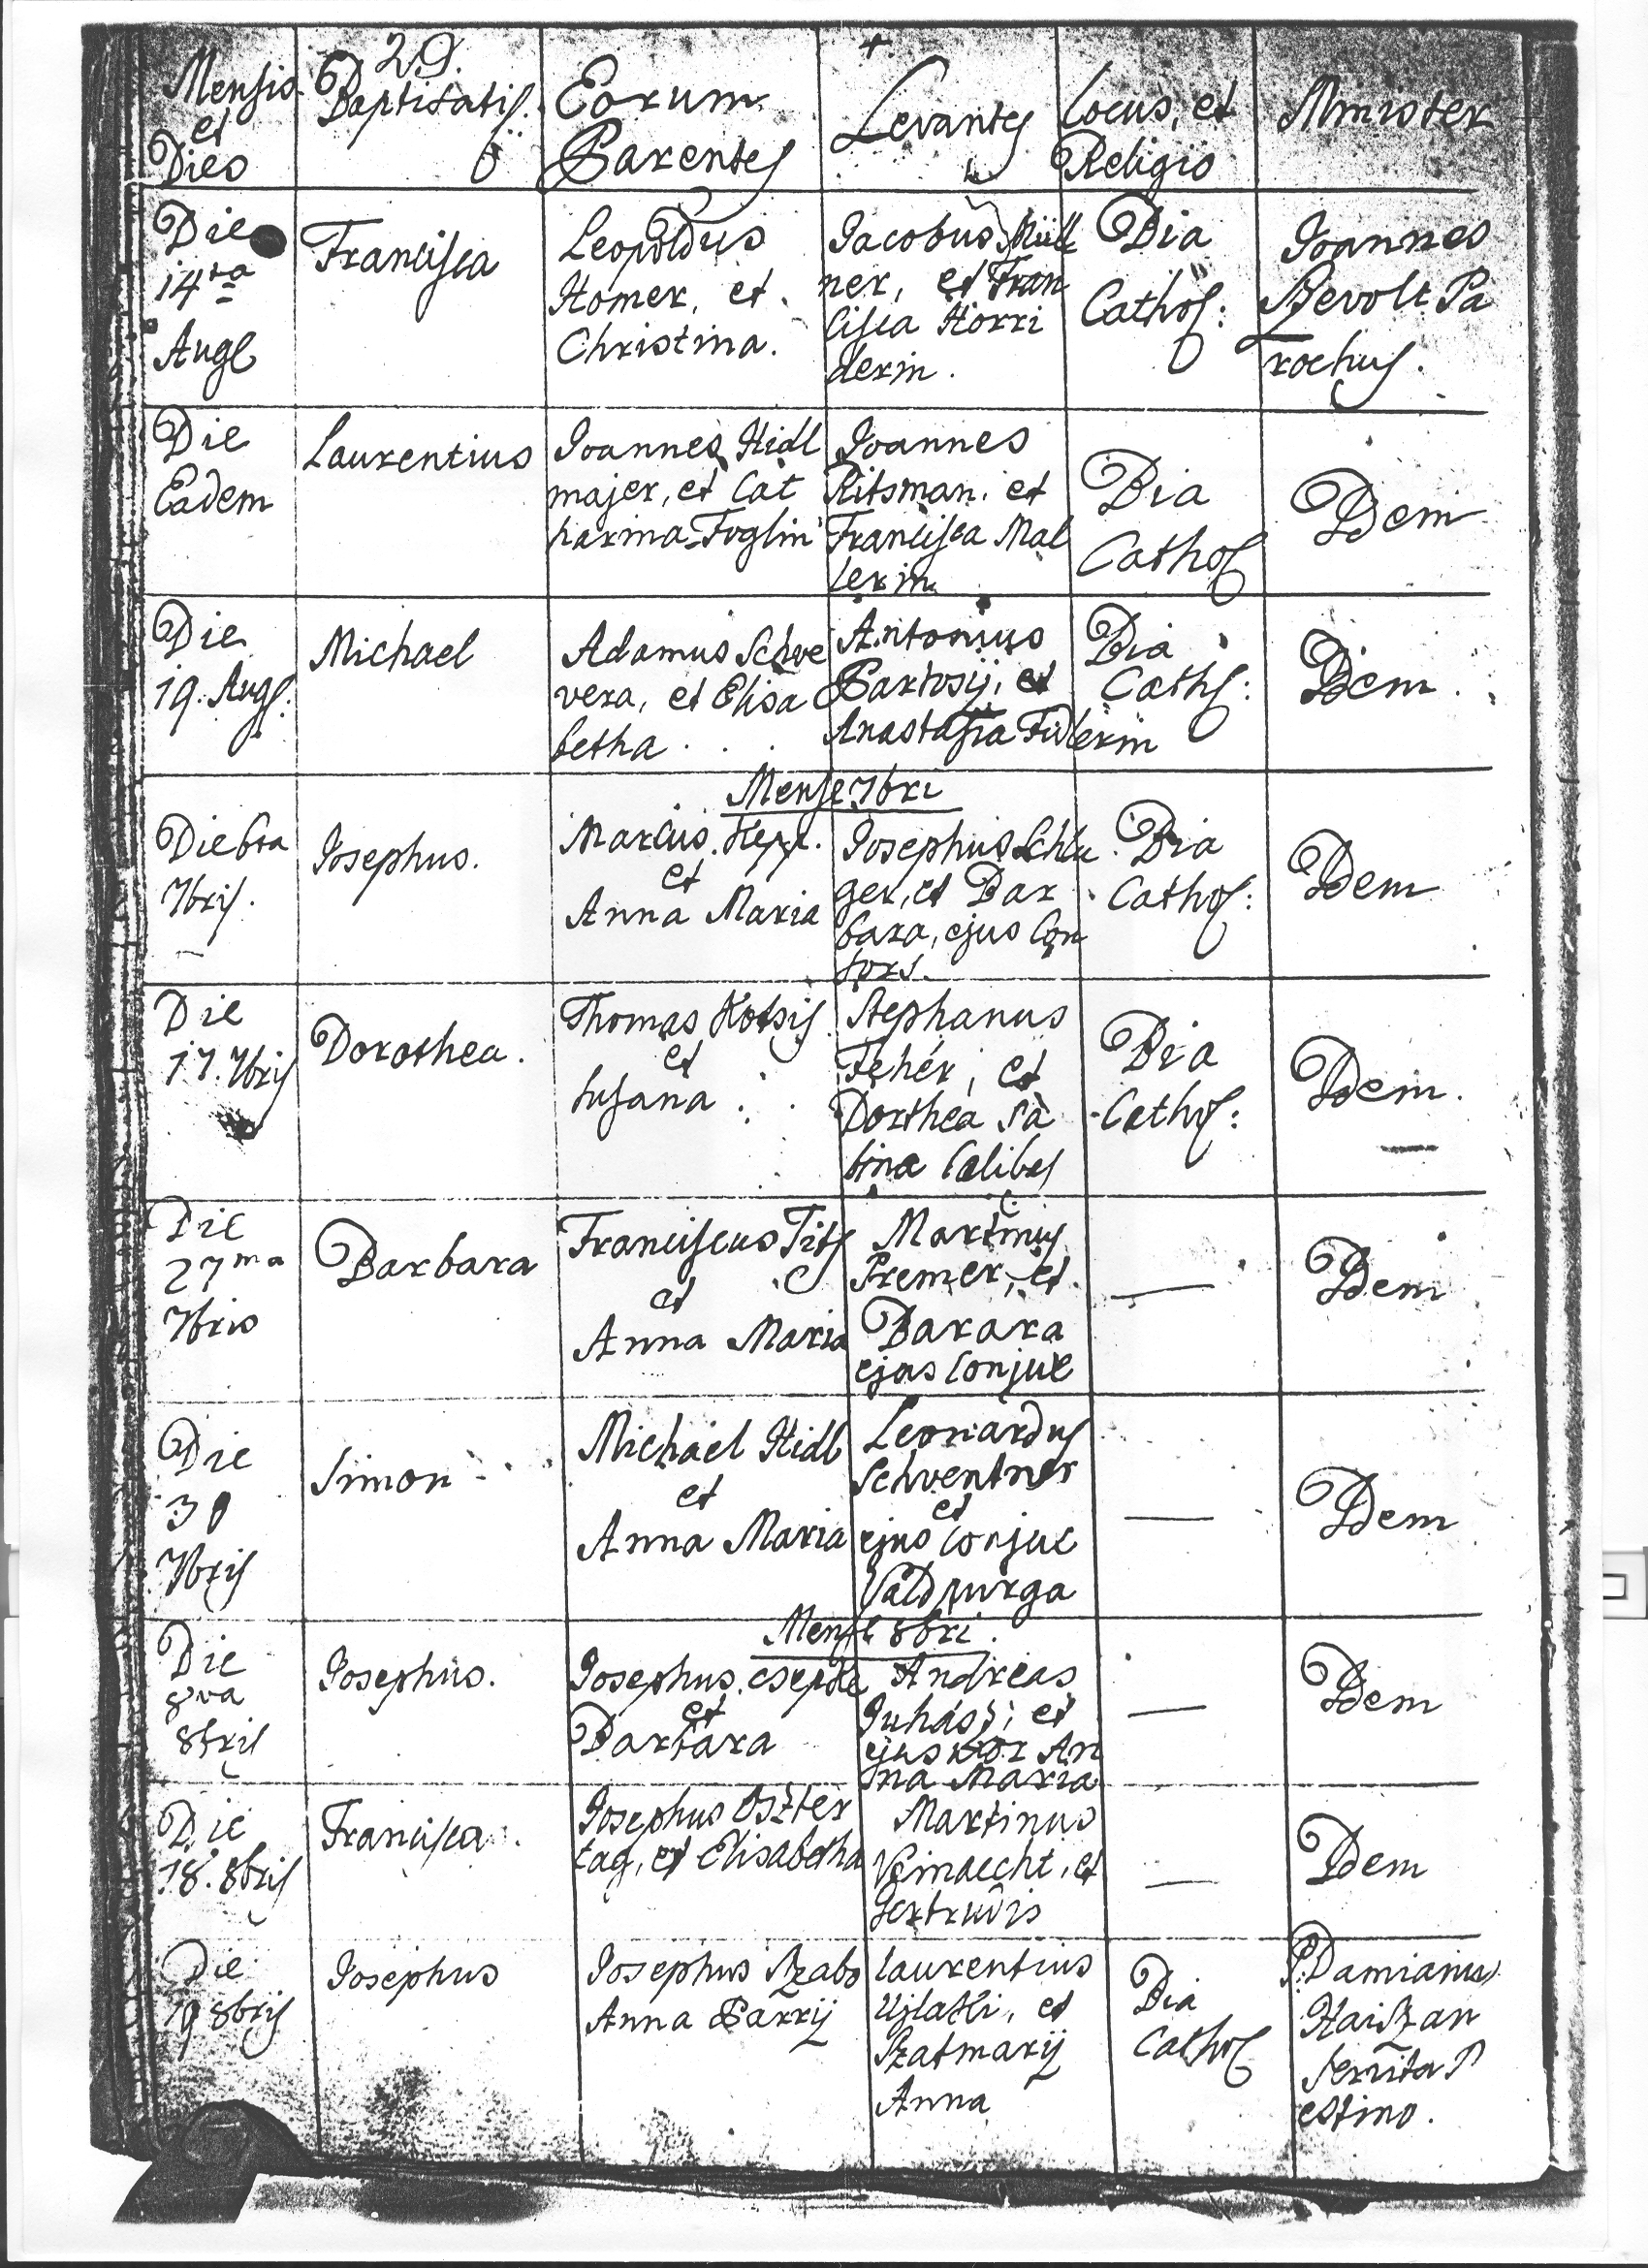 29.
Mensis et Dies
Baptisatis.
Eorum Parentes
Levantes
Locus, et Religio
Minister
Die 14ta Augs
Francisca
Leopoldus
Homer, et
Christina.
Jacobus Müll
ner, et Fran
cisca Horri
derin.
Bia
Cathol:
Joannes
Bevolt Pa
rochus.
Die
Eadem
Laurentius
Joannes Hidl
majer, et Cat
harina Foglin
Joannes
Ritsman. et
Francisca Mal
lerin
Bia
Cathol
Idem
Die
19. Augs:
Michael
Adamus Schve
vera, et Elisa
betha
Antonius
Bartosij, et
Anastasia Fidlerin
Bia
Caths:
Idem.
Mense 7bri
Die 6ta
7bris.
Josephus.
Marcus Hepp.
et
Anna Maria
Josephus Schla
ger, et Bar
bara, ejus Con
sors.
Bia
Cathol:
Idem
Die
17. 7bris
Dorothea.
Thomas Kotsis
et
Susana
Stephanus
Fehér, et
Dorthea Sa
bina Celibes
Bia
Cathol:
Idem.
Die
27ma
7bris
Barbara
Franciscus Tits
et
Anna Maria
Martinus
Premer, et
Barara
ejus Conjux
Idem
Die
30
7bris
Simon
Michael Hidl
et
Anna Maria
Leonardus
Schventner
et
ejus Conjux
Valdpurga
Idem
Mense 8bri.
Die
8va
8bris
Josephus.
Josephus Csepke
et
Barbara
Andreas
Juhász; et
ejus uxor An
na Maria
Idem
Die
18. 8bris
Francisca
Josephus Oszter
tag, et Elisabetha
Martinus
Veinaecht, et
Gertrudis
Idem
Die
19 8bris
Josephus
Josephus Szabo
Anna Barrij
Laurentius
Ujlatki, et
Szatmarij
Anna
Bia
Cathol
P: Damianus
Haiszan
Servita P
estino.